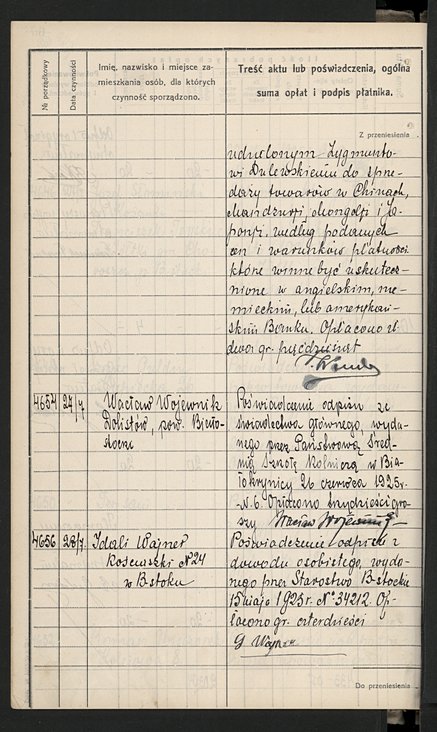 № porządkowy
Data czynności
Imię, nazwisko i miejsce za-
mieszkania osób, dla których
czynność sporządzono.
Treść aktu lub poświadczenia, ogólna
suma opłat i podpis płatnika.
Z przeniesienia
udzielonym Zygmunto-
wi Dulewskiemu do sprze-
daży towarów w Chinach,
Mandżurji, Mongolji i Ja-
ponji, według podanych
cen i warunków płatności
które winne być uskutecz-
nione w angielskim, nie-
mieckim, lub amerykań-
skim Banku. Opłacono zł
dwa gr. pięćdziesiąt
4654 27/7 Wacław Wojewnik
Dolistów, pow. Biało-
stocki
Poświadczenie odpisu ze
świadectwa głównego, wyda-
nego przez Państwową Śred-
nią Szkołę Rolniczą w Bia-
łokrynicy 26 czerwca 1925 r.
№ 6. Opłacono trzydzieści gro-
szy Wacław Wojewnik
4656 28/7. Idali Wajner
№ 24
w B-stoku
Poświadczenie odpisu z
dowodu osobistego, wyda-
nego przez Starostwo B-stockie
15 maja 1925 r. № 34212. Op-
łacono gr. czterdzieści
Wajner
Do przeniesienia